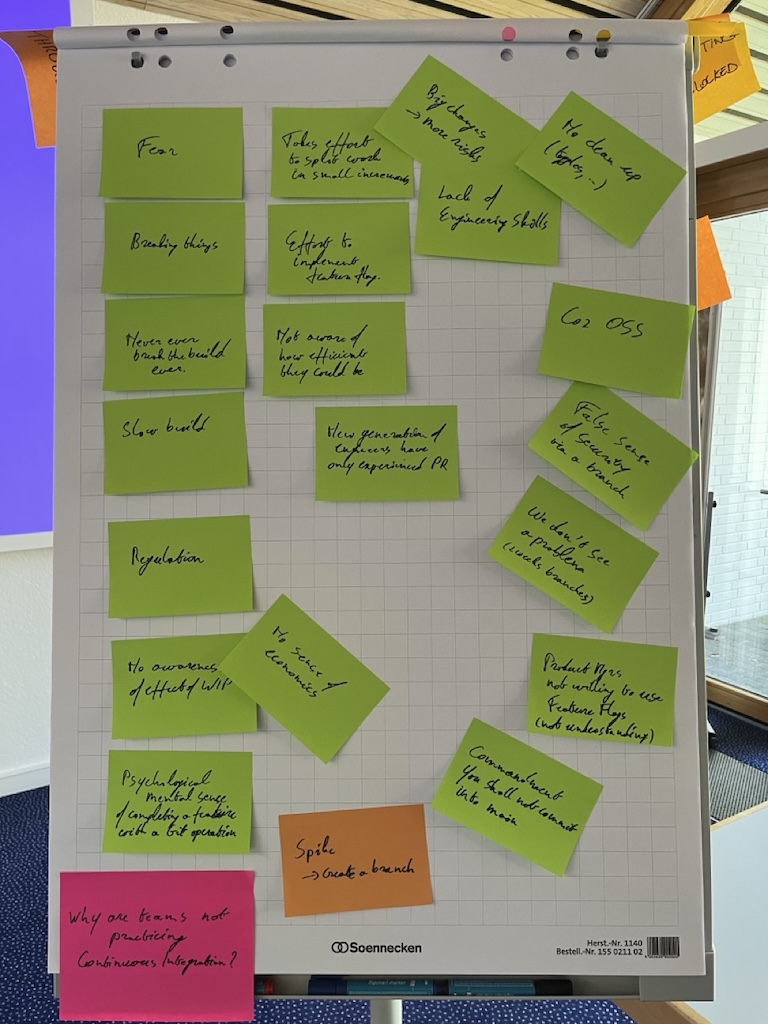 TING
LOCKED
Fear
Takes effort
to split work
in small increments
Big changes
→ more risks
No clean up
(toggles, ...)
Lack of
Engineering Skills
Breaking things
Effort to
implement
feature flag.
Never ever
break the build
ever.
Not aware of
how efficient
they could be
Coz OSS
Slow build
New generation of
engineers have
only experienced PR
False sense
of security
via a branch
We don't see
a problem
(weeks branches)
Regulation
No awareness
of effect of WIP
No sense of
economics
Product Mgrs
not willing to use
Feature Flags
(not understanding)
Psychological
mental sense
of completing a feature
with a Git operation
Commandment
You shall not commit
into main
Spike
→ Create a branch
Why are teams not
practicing
Continuous Integration?
Soennecken
Herst.-Nr. 1140
Bestell.-Nr. 155 0211 02